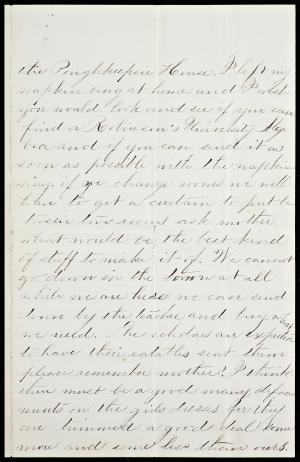 the Poughkeepsie House. I left my
napkin ring at home and I wish
you would look and see if you can
find a Robinson's University Alge
bra and if you can send it as
soon as possible with the napkin
ring. if we change rooms we will
have to get a curtain to put be
tween two rooms ask mother
what would be the best kind
of stuff to make it of. We cannot
go down in the town at all
while we are here we can send
down by the teacher and buy what
we need. The scholars are
to have their sent them
please remember mother. I think
there must be a good many
on the girls dresses for they
are trimmed a good deal some
more and some less than ours.